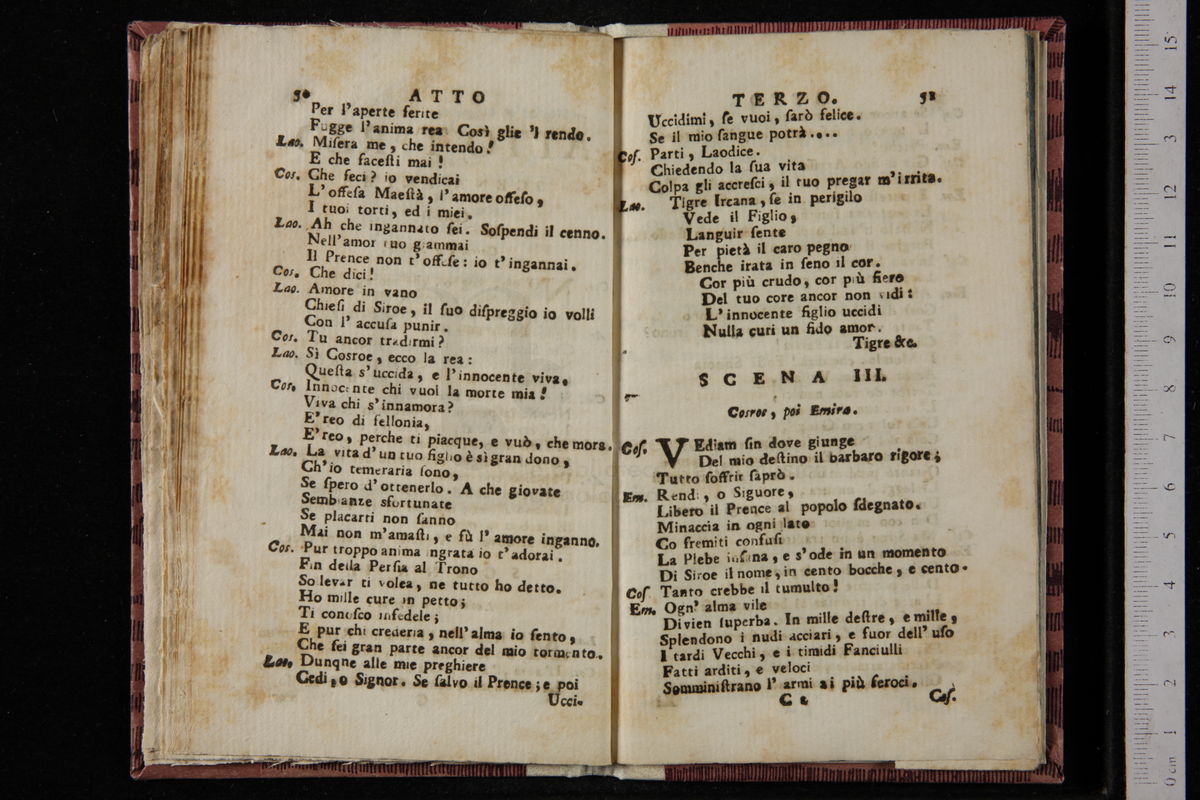 50 ATTO
Per l'aperte ferite
Fugge l'anima rea Così glie 'l rendo.
Lao. Misera me, che intendo!
E che facesti mai!
Cos. Che feci? io vendicai
L'offesa Maestà, l'amore offeso,
I tuoi torti, ed i miei.
Lao. Ah che ingannato sei. Sospendi il cenno.
Nell'amor tuo giammai
Il Prence non t'offese: io t'ingannai.
Cos. Che dici!
Lao. Amore in vano
Chiesi di Siroe, il suo dispreggio io volli
Con l'accusa punir.
Cos. Tu ancor tradirmi?
Lao. Sì Cosroe, ecco la rea:
Questa s'uccida, e l'innocente viva.
Cos. Innocente chi vuol la morte mia!
Viva chi s'innamora?
E'reo di fellonia,
E'reo, perche ti piacque, e vuò, che mora.
Lao. La vita d'un tuo figlio è sì gran dono,
Ch'io temeraria sono,
Se spero d'ottenerlo. A che giovate
Sembianze sfortunate
Se placarti non sanno
Mai non m'amasti, e fù l'amore inganno.
Cos. Pur troppo anima ingrata io t'adorai.
Fin della Persia al Trono
So levar ti volea, ne tutto ho detto.
Ho mille cure in petto;
Ti conosco infedele;
E pur chi crederia, nell'alma io sento,
Che sei gran parte ancor del mio tormento.
Lao. Dunqne alle mie preghiere
Cedi, o Signor. Se salvo il Prence; e poi
Ucci-
TERZO. 51
Uccidimi, se vuoi, sarò felice.
Se il mio sangue potrà....
Cos. Parti, Laodice.
Chiedendo la sua vita
Colpa gli accresci, il tuo pregar m'irrita.
Lao. Tigre Ircana, se in periglio
Vede il Figlio,
Languir sente
Per pietà il caro pegno
Benche irata in seno il cor.
Cor più crudo, cor più fiero
Del tuo core ancor non vidi:
L'innocente figlio uccidi
Nulla curi un fido amor.
Tigre &c.
SCENA III.
Cosroe, poi Emira.
Cos. VEdiam sin dove giunge
Del mio destino il barbaro rigore;
Tutto soffrir saprò.
Em. Rendi, o Siguore,
Libero il Prence al popolo sdegnato.
Minaccia in ogni lato
Co fremiti confusi
La Plebe insana, e s'ode in un momento
Di Siroe il nome, in cento bocche, e cento.
Cos Tanto crebbe il tumulto!
Em. Ogn' alma vile
Divien superba. In mille destre, e mille,
Splendono i nudi acciari, e fuor dell' uso
I tardi Vecchi, e i timidi Fanciulli
Fatti arditi, e veloci
Somministrano l' armi ai più feroci.
C 2 Cos.
15
14
13
12
11
10
9
8
7
6
5
4
3
2
1
0 cm